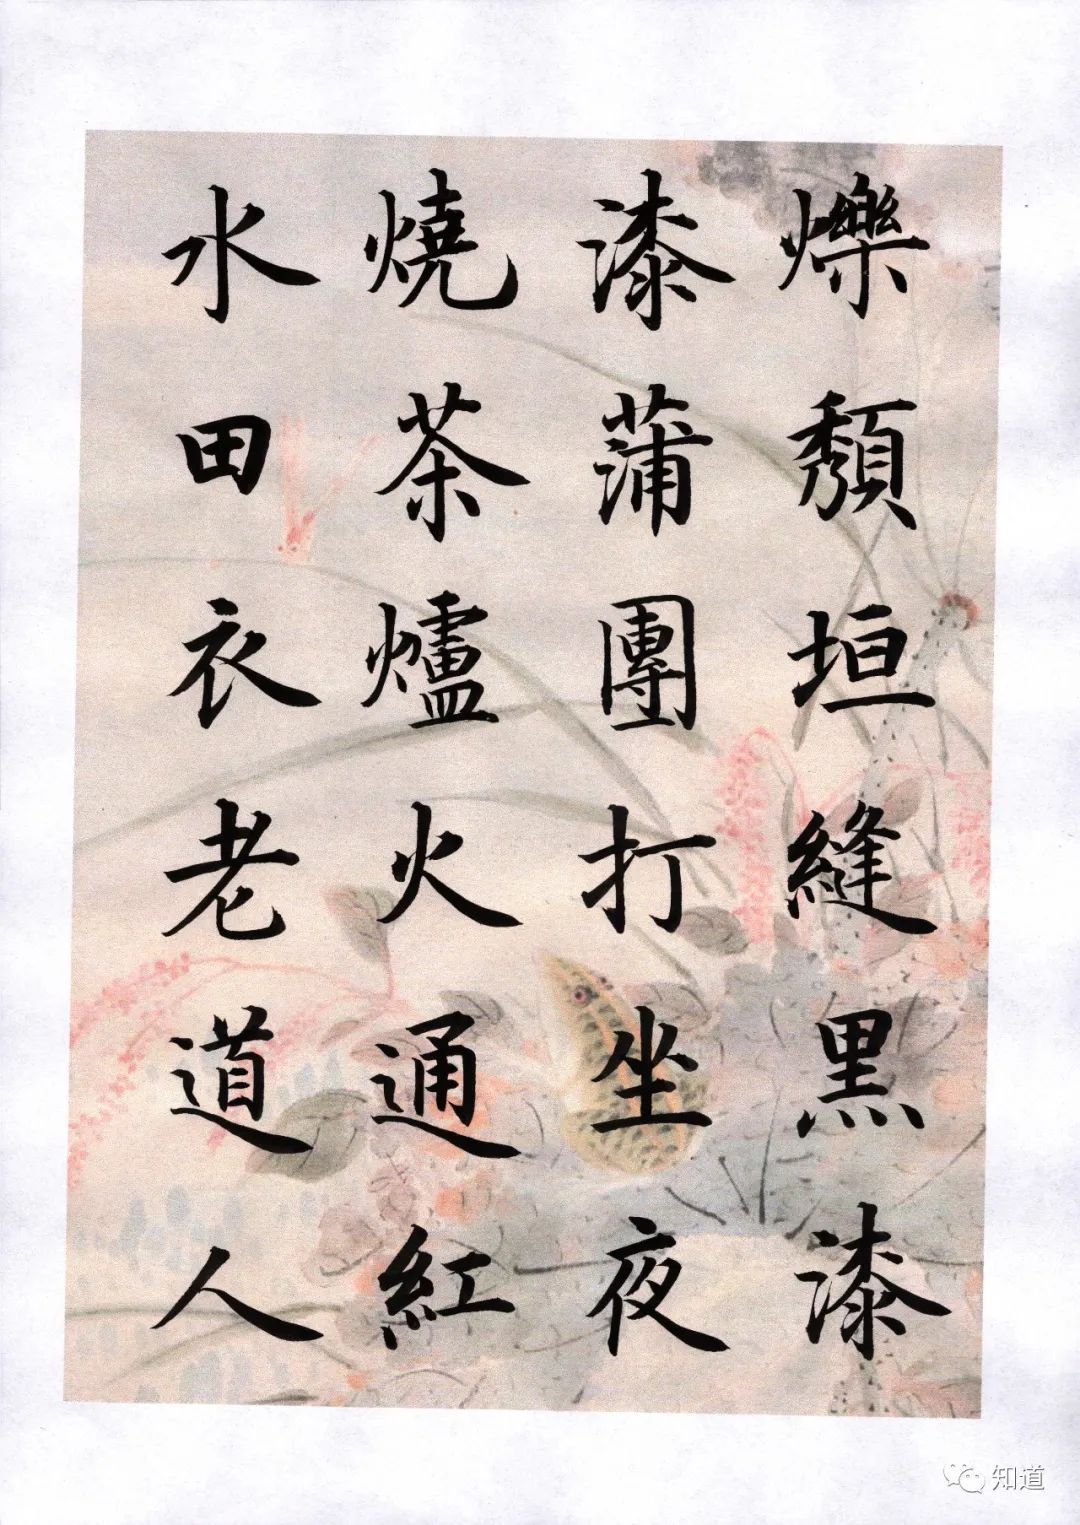 爍頽垣縫黑漆
漆蒲團打坐夜
燒茶爐火通紅
水田衣老道人
知道